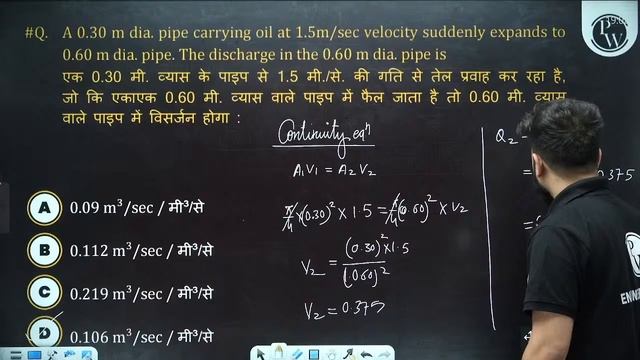 #Q. A 0.30 m dia. pipe carrying oil at 1.5m/sec velocity suddenly expands to
0.60 m dia. pipe. The discharge in the 0.60 m dia. pipe is
एक 0.30 मी. व्यास के पाइप से 1.5 मी./से. की गति से तेल प्रवाह कर रहा है,
जो कि एकाएक 0.60 मी. व्यास वाले पाइप में फैल जाता है तो 0.60 मी. व्यास
वाले पाइप में विसर्जन होगा :
Continuity eqⁿ
A₁V₁ = A₂V₂
π/4 × (0.30)² × 1.5 = π/4 (0.60)² × V₂
V₂ = (0.30)² × 1.5 / (0.60)²
V₂ = 0.375
Q₂ -
=
0.375
=
A 0.09 m³/sec / मी³/से
B 0.112 m³/sec / मी³/से
C 0.219 m³/sec / मी³/से
D 0.106 m³/sec / मी³/से
P
W
PW